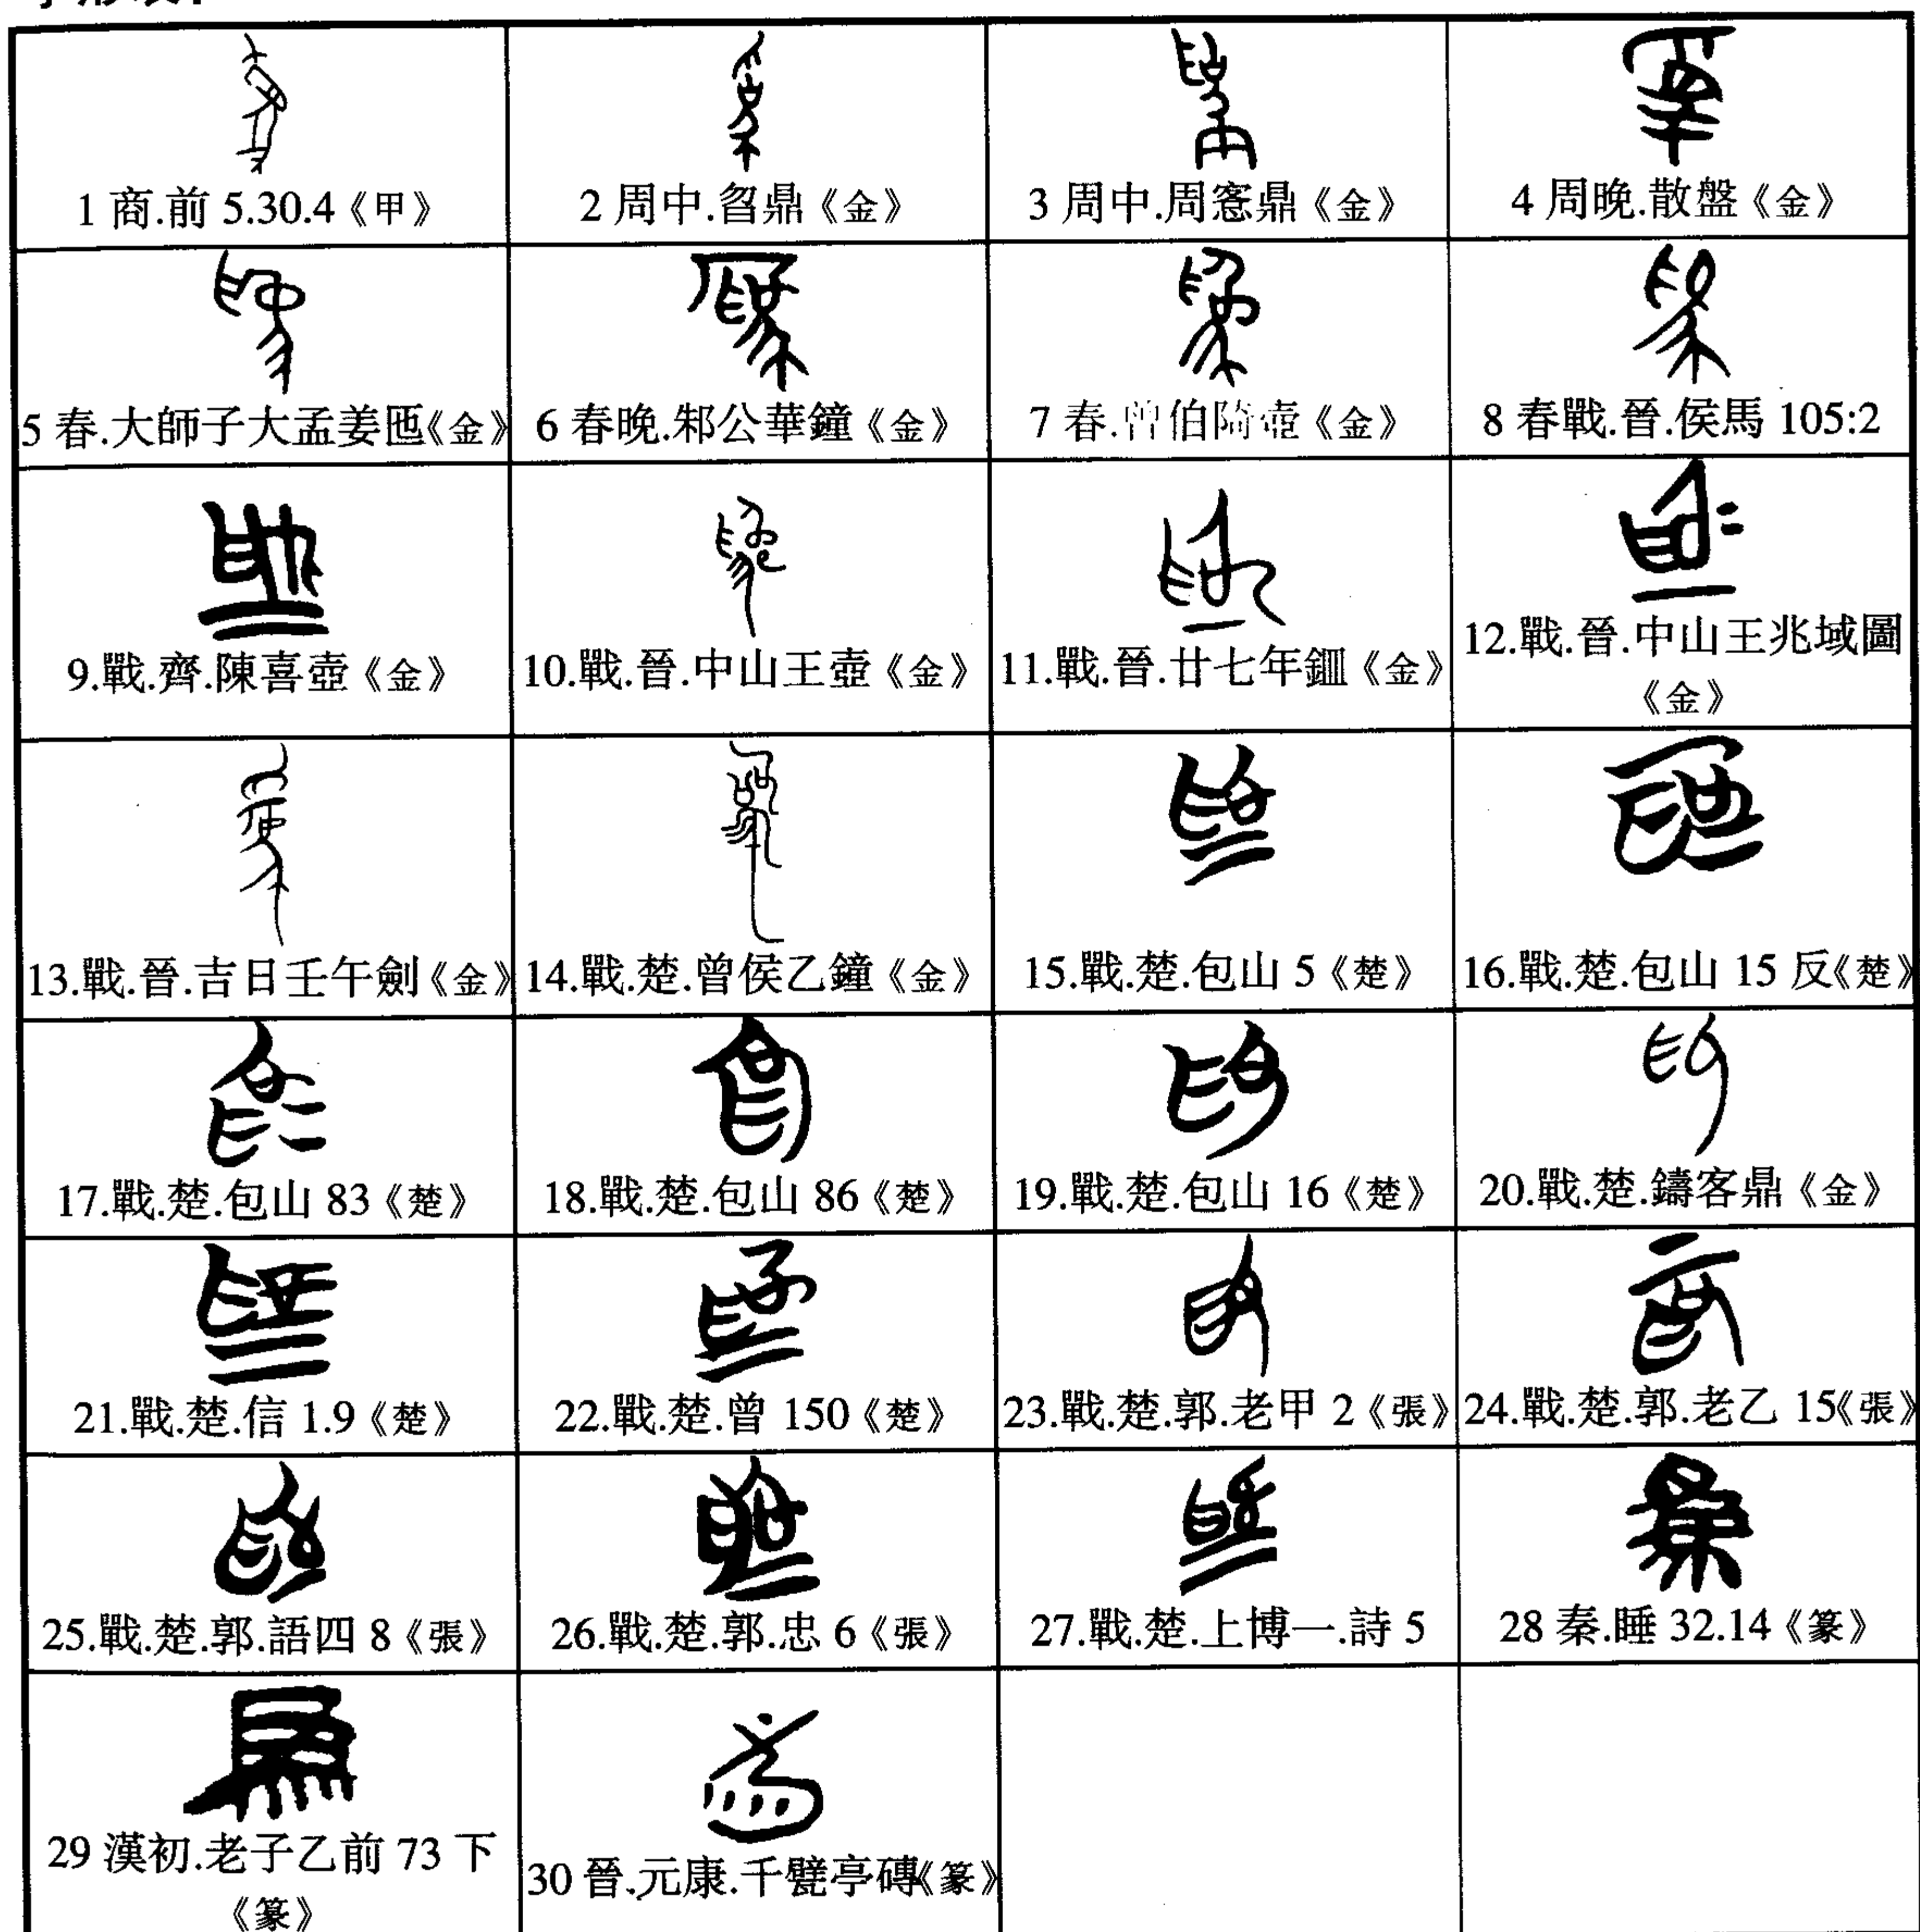 1 商.前 5.30.4《甲》
2 周中.曶鼎《金》
3 周中.周窓鼎《金》
4 周晚.散盤《金》
5 春.大師子大孟姜匜《金》
6 春晚.邾公華鐘《金》
7 春.曾伯陭壺《金》
8 春戰.晉.侯馬 105:2
9.戰.齊.陳喜壺《金》
10.戰.晉.中山王壺《金》
11.戰.晉.廿七年鈿《金》
12.戰.晉.中山王兆域圖
《金》
13.戰.晉.吉日壬午劍《金》
14.戰.楚.曾侯乙鐘《金》
15.戰.楚.包山 5《楚》
16.戰.楚.包山 15 反《楚》
17.戰.楚.包山 83《楚》
18.戰.楚.包山 86《楚》
19.戰.楚.包山 16《楚》
20.戰.楚.鑄客鼎《金》
21.戰.楚.信 1.9《楚》
22.戰.楚.曾 150《楚》
23.戰.楚.郭.老甲 2《張》
24.戰.楚.郭.老乙 15《張》
25.戰.楚.郭.語四 8《張》
26.戰.楚.郭.忠 6《張》
27.戰.楚.上博一.詩 5
28 秦.睡 32.14《篆》
29 漢初.老子乙前 73 下
《篆》
30 晉.元康.千甓亭磚《篆》